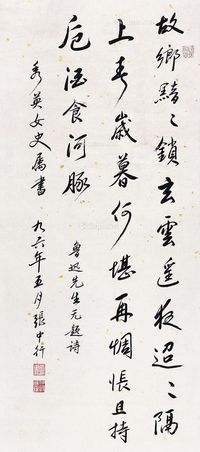 故鄉黯〻鎖玄雲遥夜迢〻隔
上春歲暮何堪再惆悵且持
卮酒食河豚
魯迅先生无題詩
秀英女史属書
九六年五月張中行